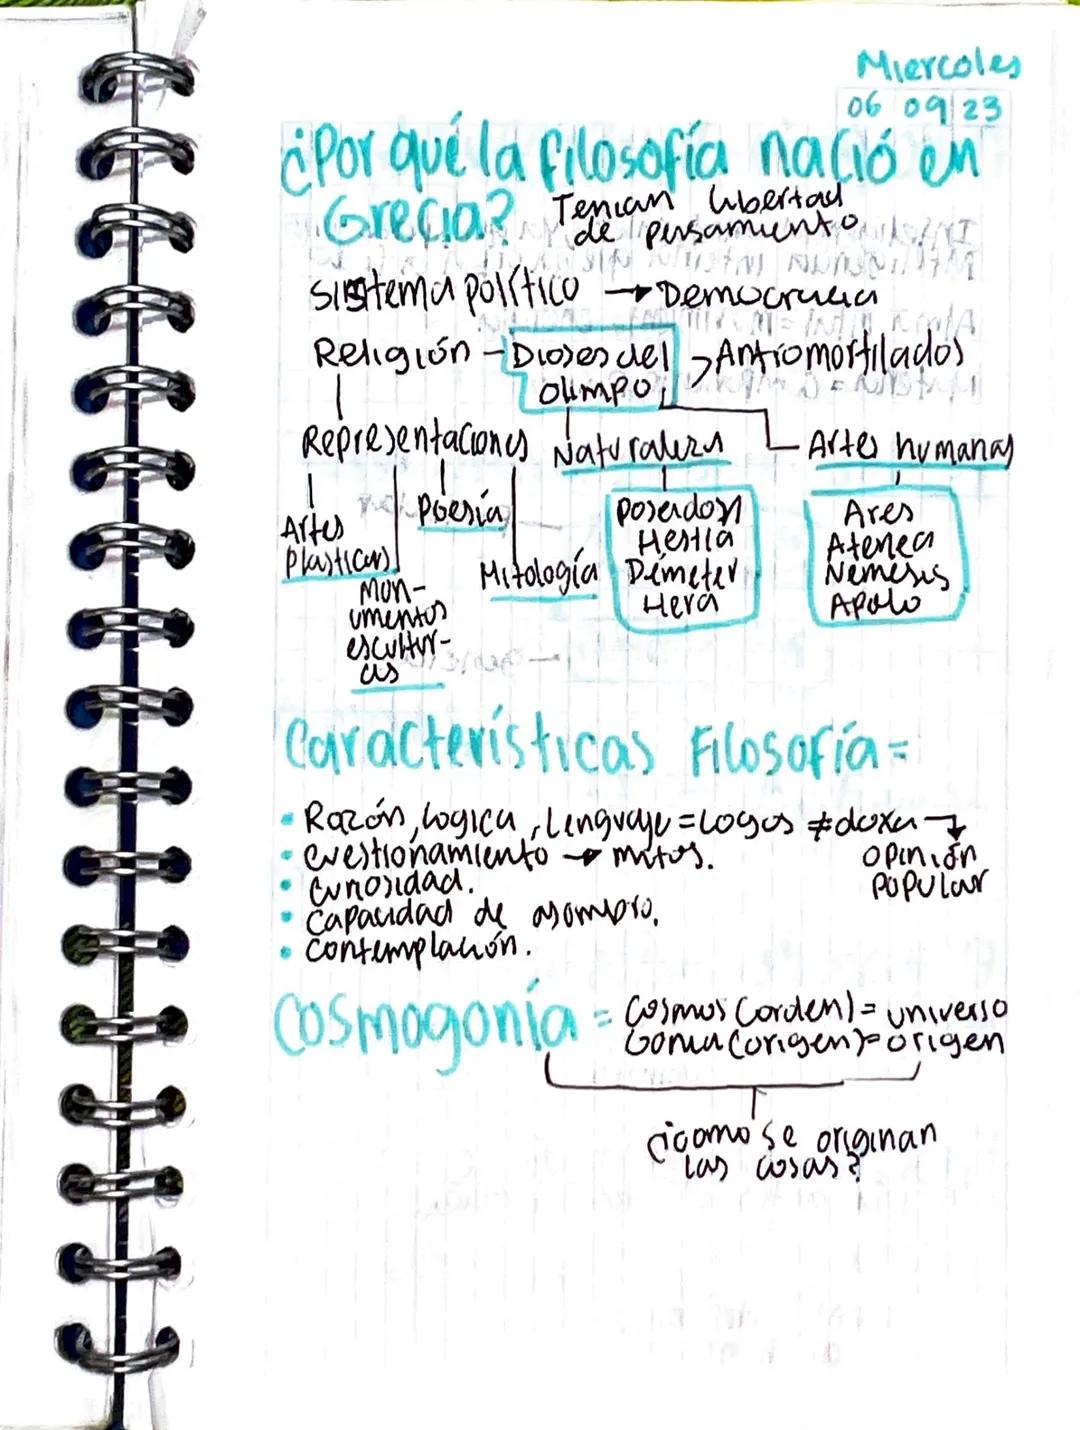 Miercoles
06 09 23
¿Por qué la filosofía nació en
Grecia? Tenian libertad
de pensamiento
sistema político → Democracia
Religión - Dioses del > Antromorfilados
olimpo
Representaciones Naturaleza Artes humanas
Artes
Plasticas
Poesía
Mitología
Mon-
umentos
escultur-
as
Poseidon
Hestia
Démeter
Hera
Ares
Atenea
Nemesis
Apolo
Características Filosofía =
• Razón, Logica, Lenguaje = Logos ≠ doxa → opinión
popular
• cuestionamiento → mitos.
• curiosidad.
• capacidad de asombro.
• contemplación.
Cosmogonía = Cosmos (orden) = universo
Gonia (origen) = origen
¿como se originan
las cosas?